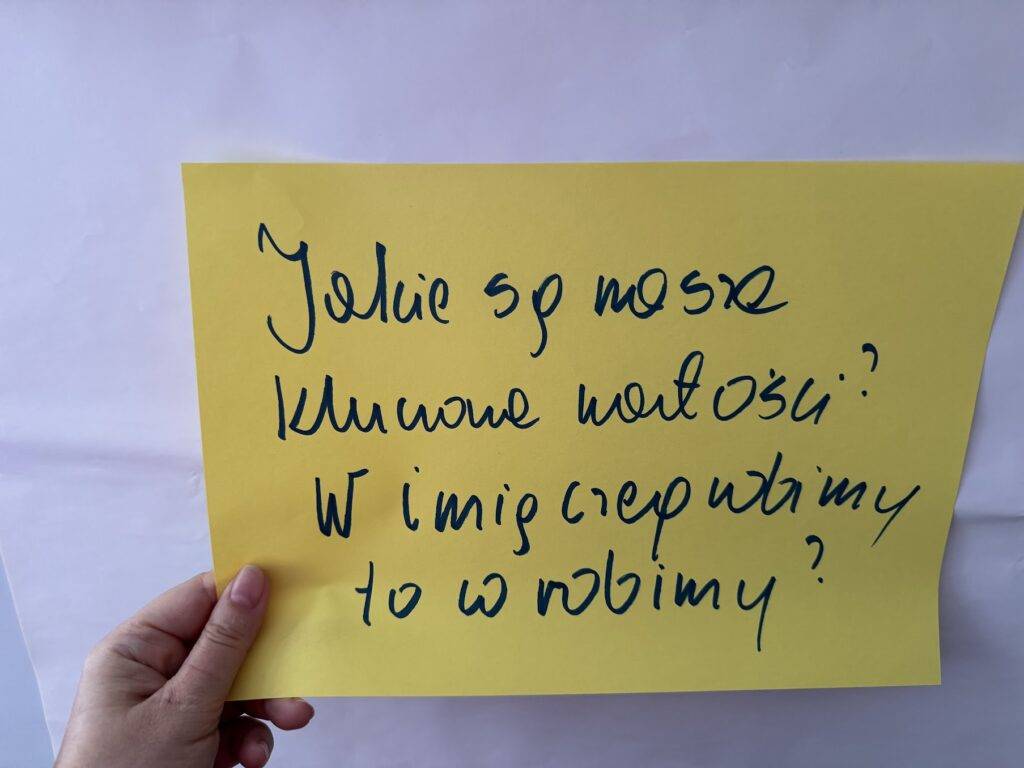 Jakie są nasze
kluczowe wartości?
W imię czego robimy
to co robimy?